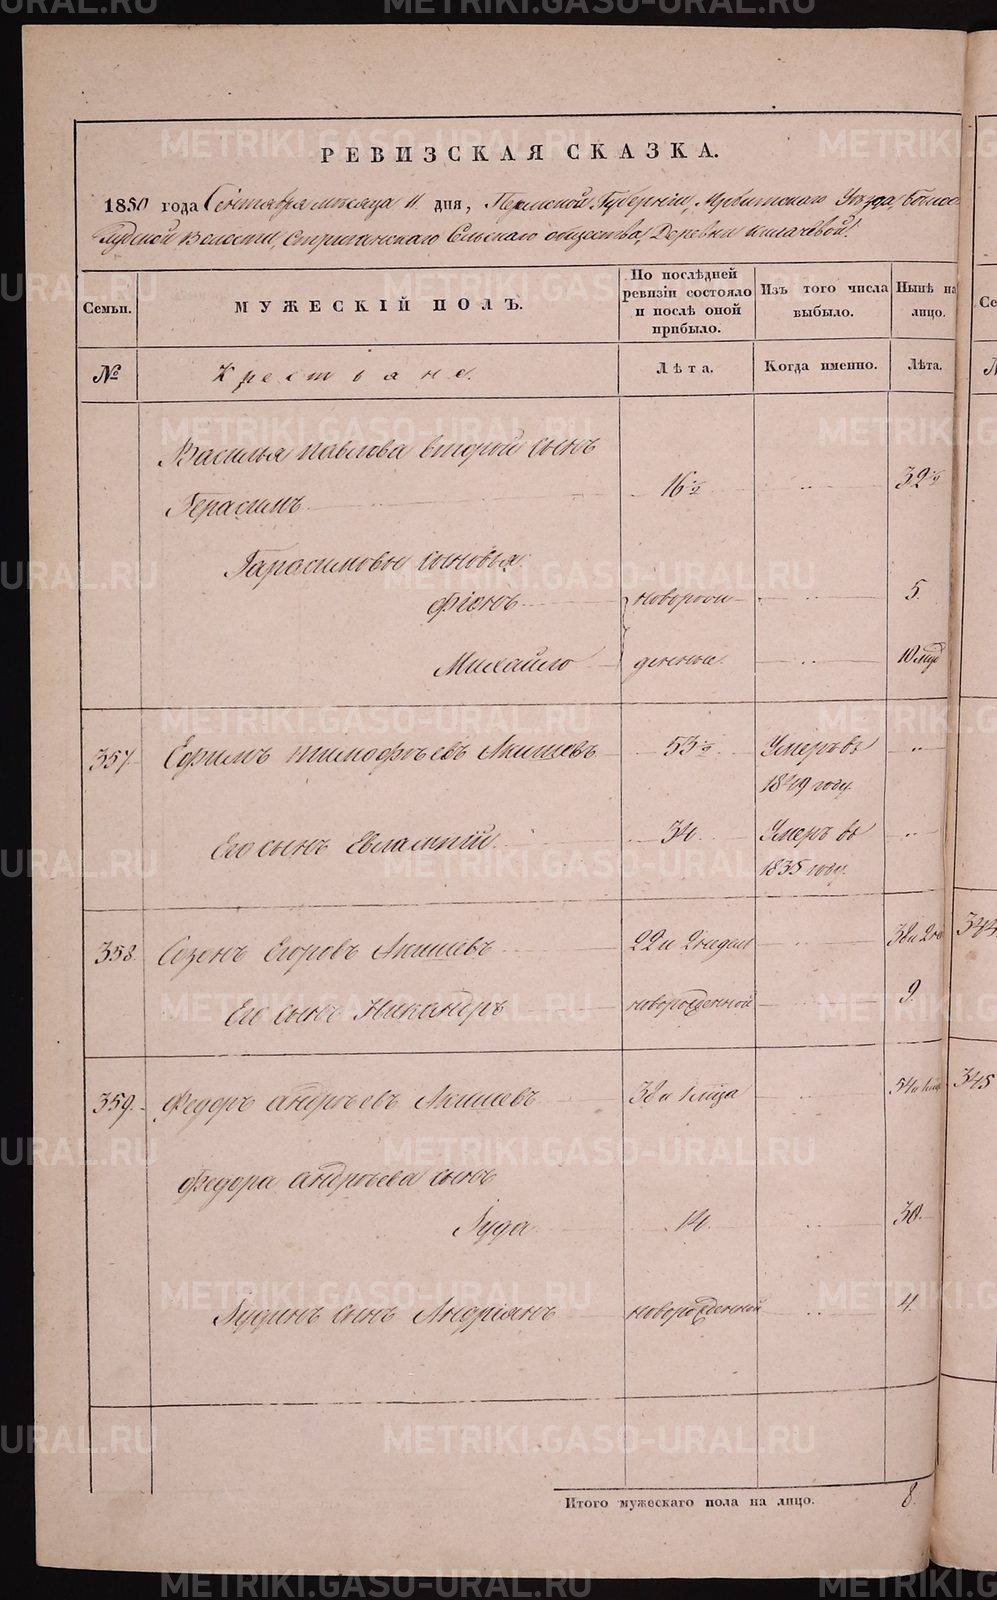 РЕВИЗСКАЯ СКАЗКА.
1850 года Сентября месяца 11 дня, Пермской Губерніи, Ирбитского Уезда,
Волости, Стриганского Сельского общества, Деревни
Семьи. МУЖЕСКІЙ ПОЛЪ. По послѣдней ревизіи состояло и послѣ оной прибыло. Изъ того числа выбыло. Нынѣ на лицо.
№ Крестьяне. Лѣта. Когда именно. Лѣта.
Василья Павлова второй сынъ
Герасимъ 16½ 32½
Гарасимовы сыновья
Фіонъ новорож- 5.
Михайло денные 10 мцъ
357. Ефимъ Тимофѣевъ Акишевъ 53½ Умеръ въ
1849 году.
Его сынъ Евлампій 34. Умеръ въ
1835 году.
358. Созонъ Егоровъ Акишевъ 22 и 2 недели 38 и 2 не 344
Его сынъ Никандръ новорожденной 9.
359. Федоръ Андрѣевъ Акишевъ 38 и 1 мца 54 и 1 мца 345
Федора Андрѣева сынъ
Іуда 14. 30.
Іудинъ сынъ Андріянъ новорожденной 4.
Итого мужескаго пола на лицо. 8.
METRIKI.GASO-URAL.RU